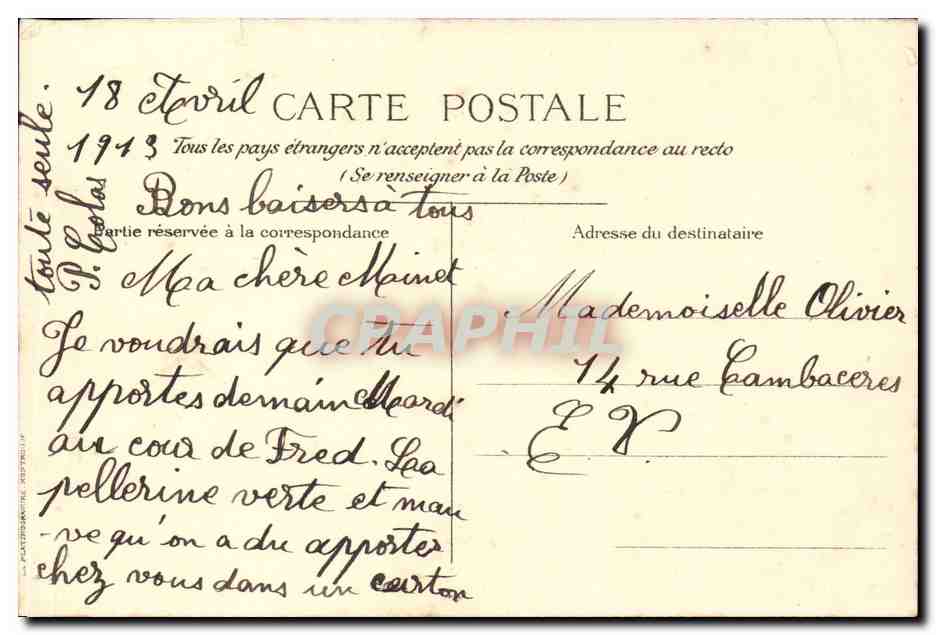 18 Avril CARTE POSTALE
1913 Tous les pays étrangers n'acceptent pas la correspondance au recto
(Se renseigner à la Poste)
Bons baisers à tous
Partie réservée à la correspondance
Ma chère Mainet
Je voudrais que tu
apportes demain Mardi
au cour de Fred. La
pellerine verte et mau
-ve qu'on a du apporter
chez vous dans un carton
toute seule.
P. Colas
Adresse du destinataire
Mademoiselle Olivier
14 rue Cambaceres
E V.
CRAPHIL